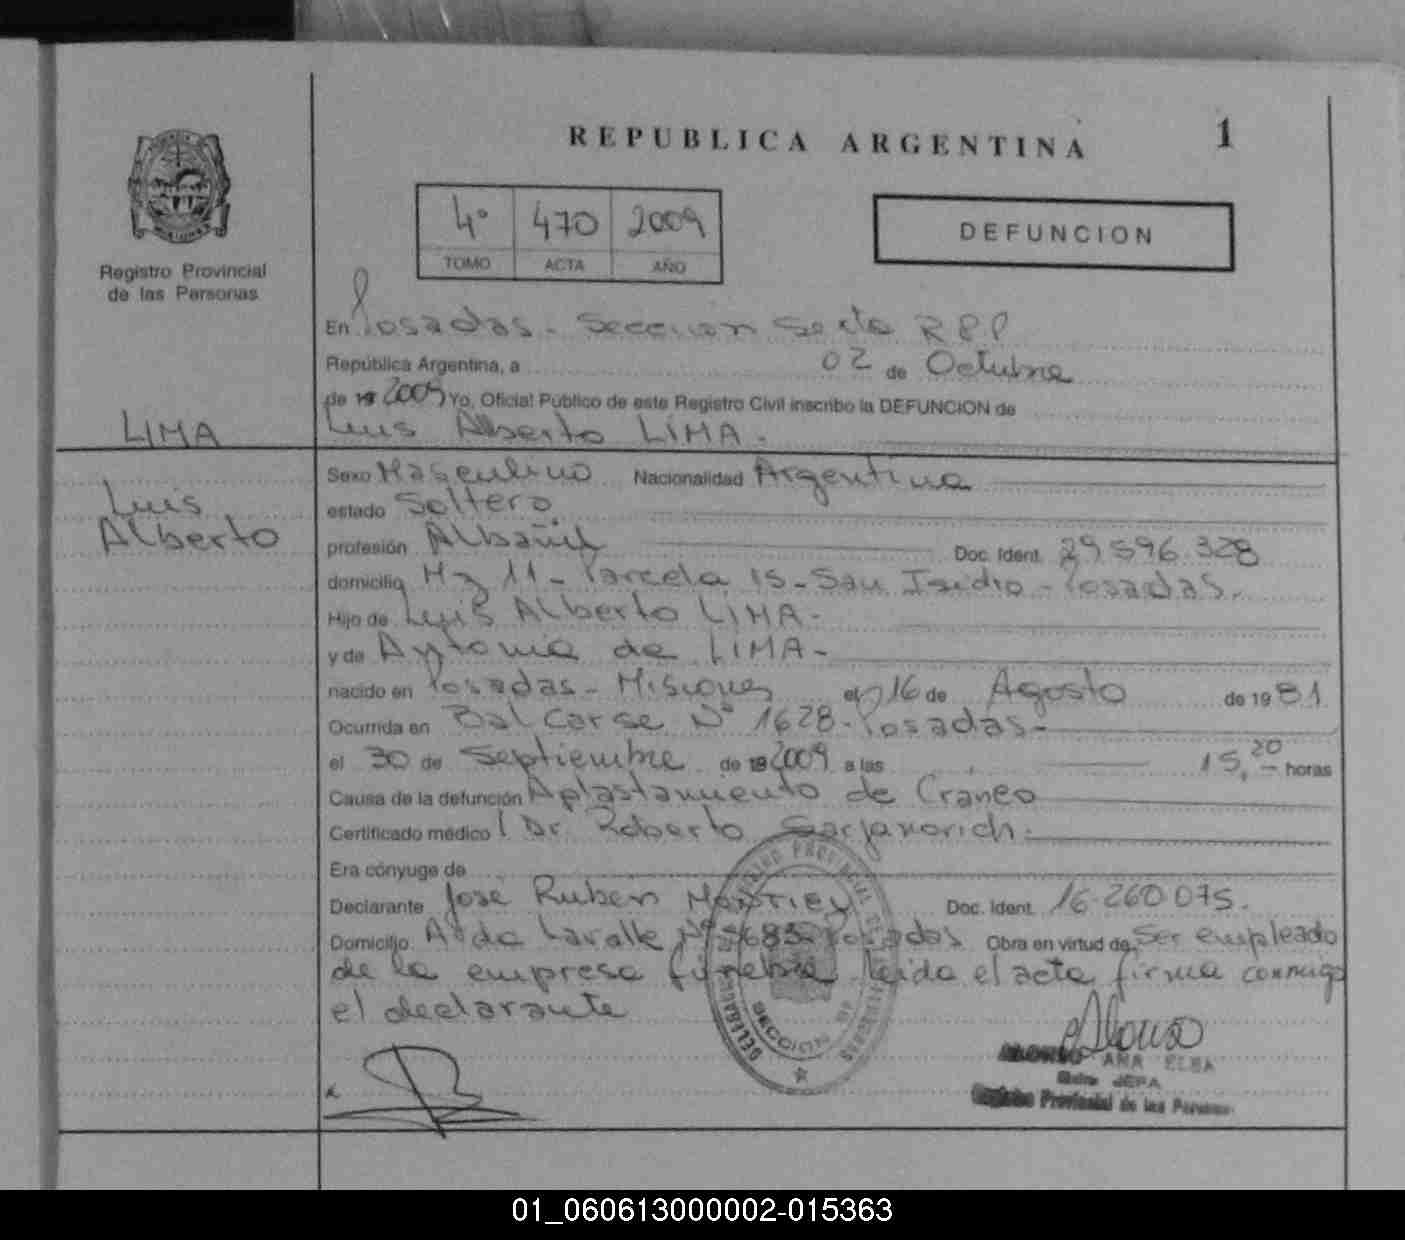 REPUBLICA ARGENTINA
1
4° 470 2009
TOMO ACTA AÑO
DEFUNCION
Registro Provincial
de las Personas
LIMA
Luis
Alberto
En Posadas - Seccion Sexta R P P
República Argentina, a 02 de Octubre
de 19 2009 Yo, Oficial Público de este Registro Civil inscribo la DEFUNCION de
Luis Alberto LIMA.
Sexo Masculino Nacionalidad Argentina
estado Soltero
profesión Albañil Doc. Ident. 29.596.328
domicilio Mz 11 - Parcela 15 - San Isidro - Posadas.
Hijo de Luis Alberto LIMA -
y de Antonia de LIMA -
nacido en Posadas - Misiones el 16 de Agosto de 1981
Ocurrida en Balcarse N° 1628 - Posadas -
el 30 de Septiembre de 19 2009 a las 15,20 horas
Causa de la defunción Aplastamiento de Craneo
Certificado médico Dr. Roberto
Era cónyuge de
Declarante José Ruben Doc. Ident. 16.260.075.
Domicilio Avda Lavalle N° Posadas Obra en virtud de Ser empleado
de la empresa funebre leida el acta firma conmigo
el declarante
SECCION
ALONSO ANA ELBA
JEFA
Registro Provincial de las Personas
01_060613000002-015363